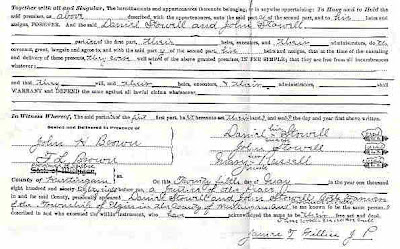 Together with all and Singular, The hereditaments and appurtenances thereunto belonging, or in anywise appertaining: To Have and to Hold the
said premises as above described, with the appurtenances, unto the said part y of the second part, and to his heirs and
assigns, FOREVER. And the said Daniel Stowell and John Stowell
part ies of the first part, their heirs, executors, and their administrators, do
covenant, grant, bargain and agree to, and with the said part y of the second part, his heirs and assigns, that at the time of the ensealing
and delivery of these presents, they were well seized of the above granted premises, IN FEE SIMPLE; that they are free from all incumbrances
whatever;
and that they will, and their heirs, executors, & their administrators, shall
WARRANT and DEFEND the same against all lawful claims whatsoever,
In Witness Whereof, The said part ies of the first part, ha ve hereunto set their hand s and seal s the day and year first above written.
Sealed and Delivered in Presence of
John H Brown
Brown
Daniel Stowell
John Stowell
Mary Russell
State of Michigan,
County of Huntingdon On this Twenty fifth day of May in the year one thousand
eight hundred and before me, a Justice of the Peace
in and for said County, personally appeared Daniel Stowell and John Stowell,
to me known to be the same person s
described in and who executed the within instrument, who have acknowledged the same to be their free act and deed.
James T Gillies J P